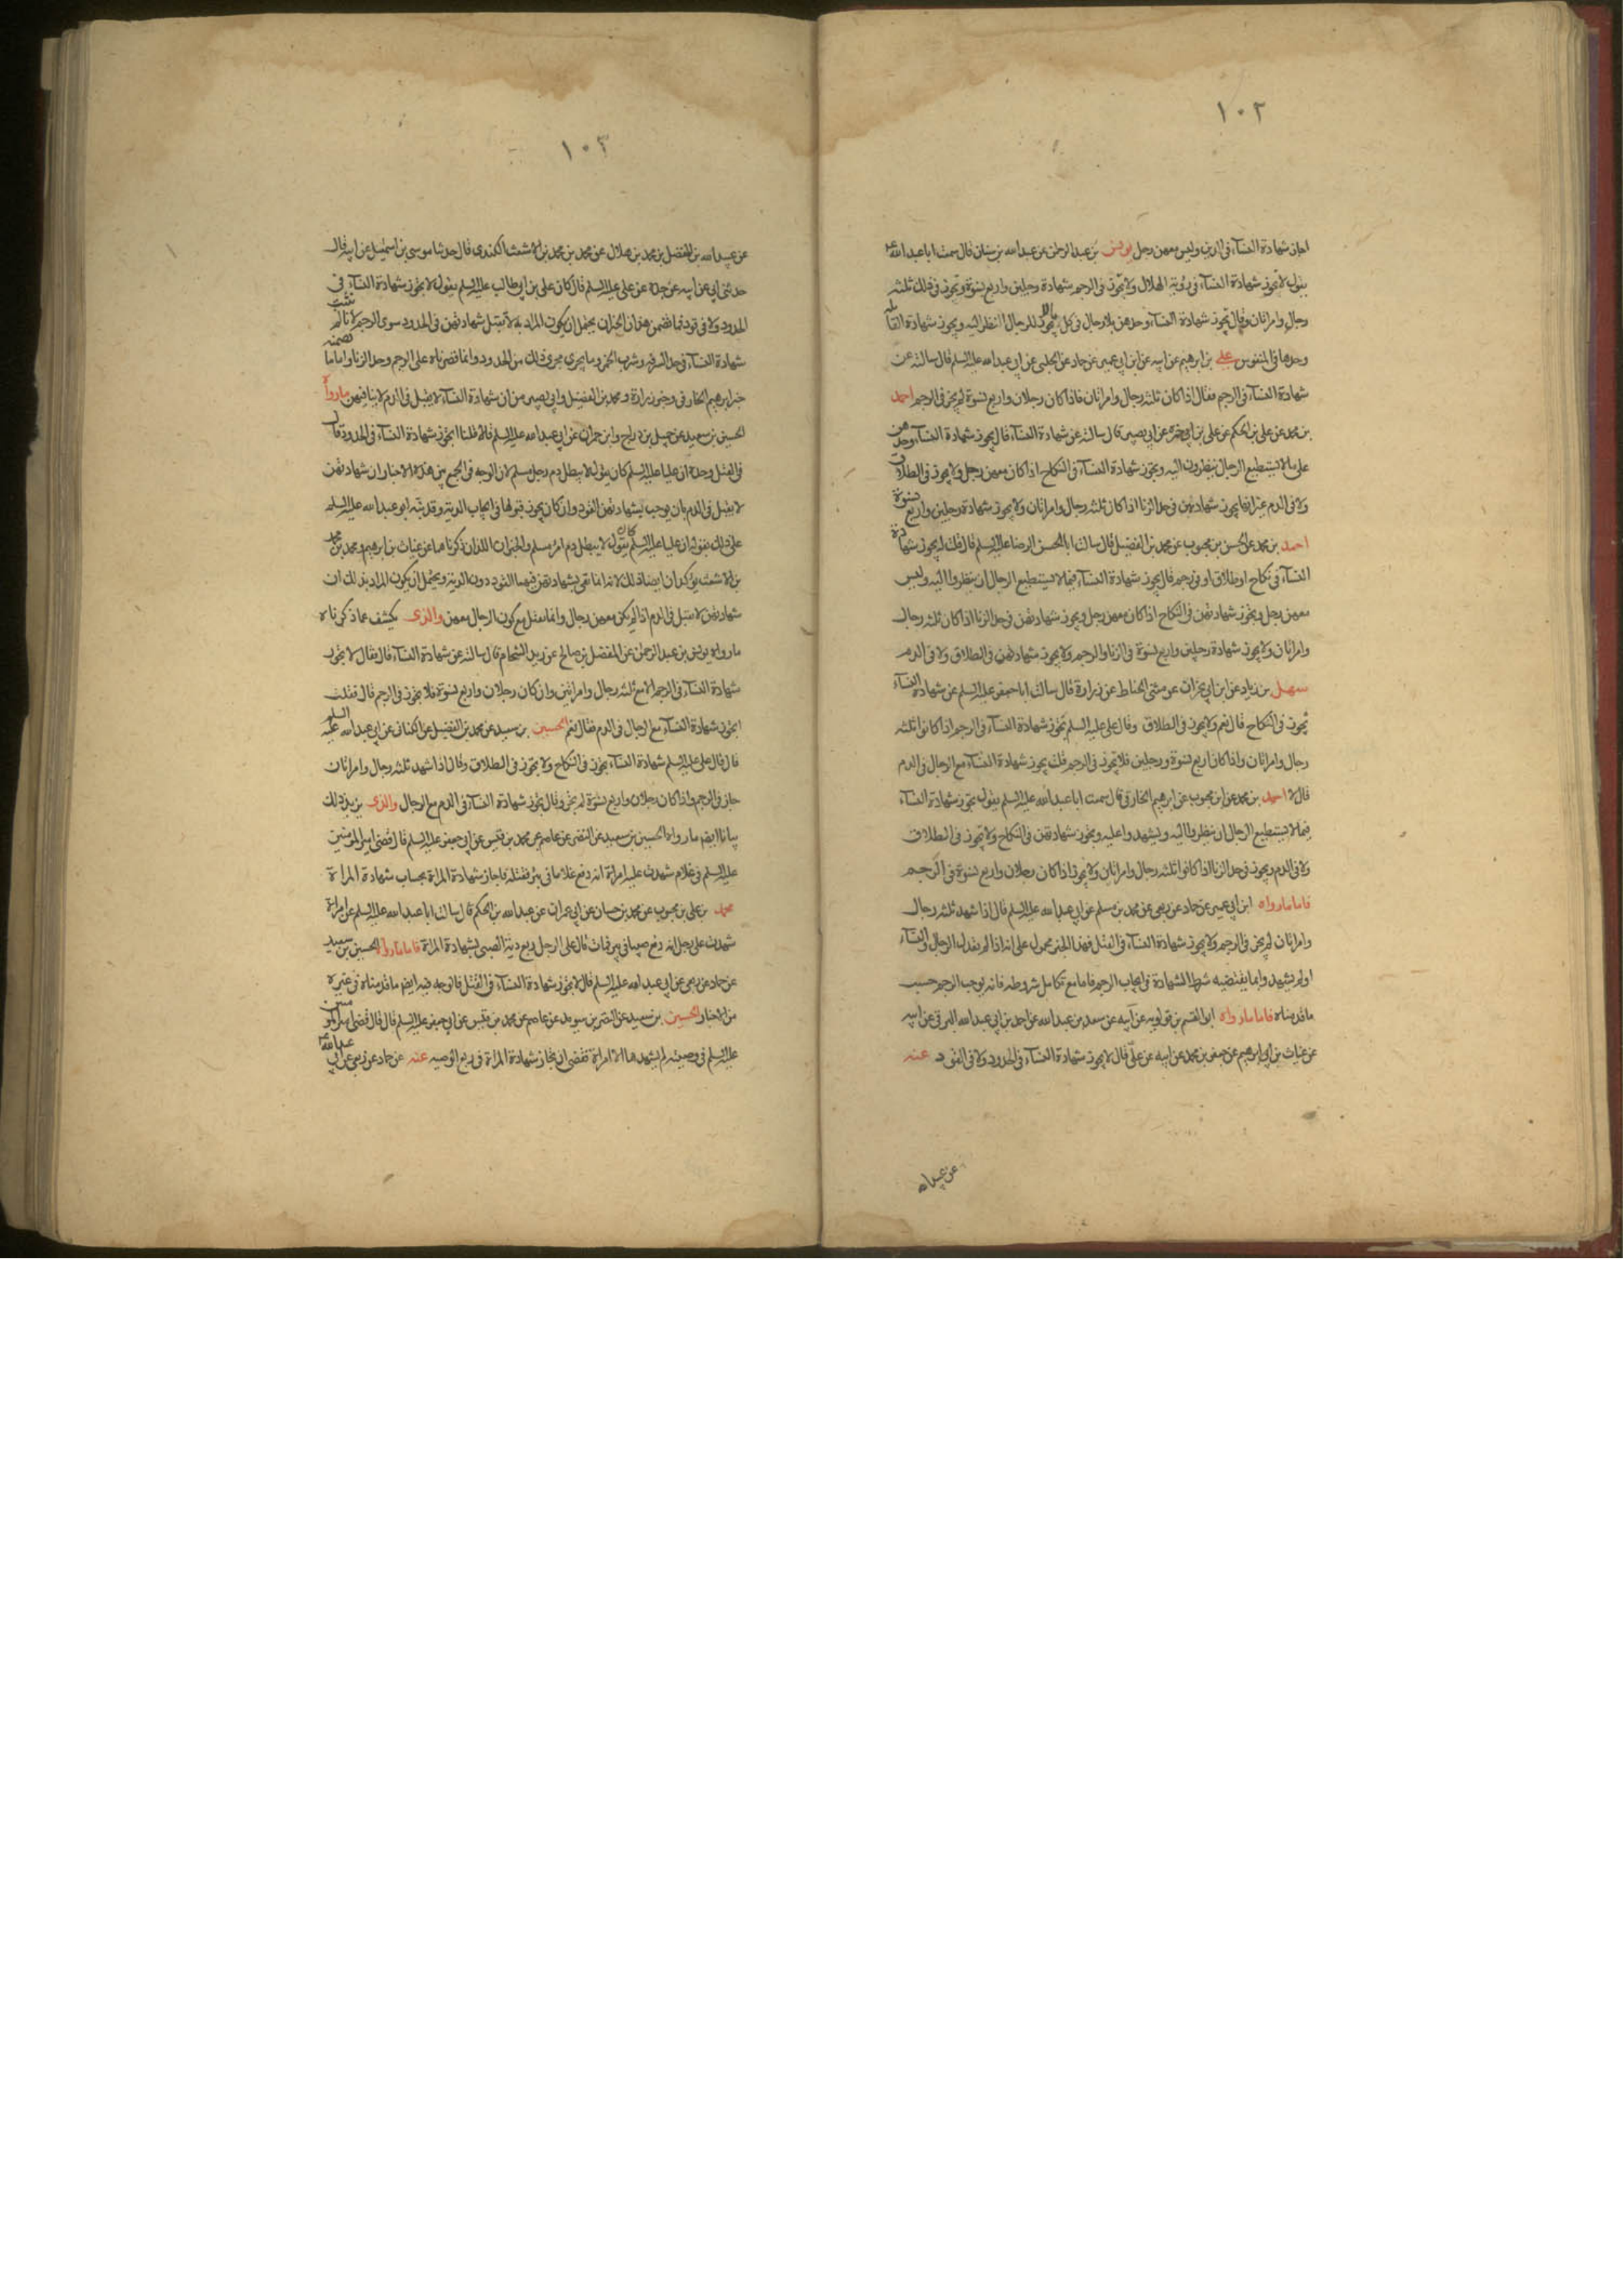 ١٠٢
اجاز شهادة النسآء فى الدين وليس معهن رجل يونس بن عبد الرحمن عن عبد الله بن سنان قال سمعت ابا عبد الله ع
يقول لا تجوز شهادة النسآء فى رؤية الهلال ولا تجوز فى الرجم شهادة رجلين واربع نسوة وتجوز فى ذلك ثلثه
رجال وامراتان وقال تجوز شهادة النسآء وحدهن بلا رجال فى كل مالا يجوز للرجال النظر اليه ويجوز شهادة القابله
وحدها فى المنفوس على بن ابرهيم عن ابيه عن ابن ابى عمير عن حماد عن الحلبى عن ابى عبد الله عليه السلم قال سالته عن
شهادة النسآء فى الرجم فقال اذا كان ثلثه رجال وامراتان فاذا كان رجلان واربع نسوة لم يجز فى الرجم احمد
بن محمد عن على بن الحكم عن على بن ابى حمزه عن ابى بصير قال سالته عن شهادة النسآء فقال يجوز شهادة النسآء وحدهن
على مالا يستطيع الرجال ينظرون اليه ويجوز شهادة النسآء فى النكاح اذا كان معهن رجل ولا يجوز فى الطلاق
ولا فى الدم غير انها يجوز شهادتهن فى حد الزنا اذا كان ثلثه رجال وامراتان ولا يجوز شهادة رجلين واربع نسوة
احمد بن محمد عن الحسن بن محبوب عن محمد بن الفضيل قال سالت ابا الحسن الرضا عليه السلم قال قلت له يجوز شهادة
النسآء فى نكاح او طلاق او فى رجم قال يجوز شهادة النسآء فيما لا يستطيع الرجال ان ينظروا اليه وليس
معهن رجل ويجوز شهادتهن فى النكاح اذا كان معهن رجل ويجوز شهادتهن فى حد الزنا اذا كان ثلثه رجال
وامراتان ولا يجوز شهادة رجلين واربع نسوة فى الزنا والرجم ولا يجوز شهادتهن فى الطلاق ولا فى الدم
سهل بن زياد عن ابن ابى نجران عن مثنى الحناط عن زرارة قال سالت ابا جعفر عليه السلم عن شهادة النسآء
تجوز فى النكاح قال نعم ولا يجوز فى الطلاق وقال على عليه السلم تجوز شهادة النسآء فى الرجم اذا كانوا ثلثه
رجال وامراتان واذا كان اربع نسوة ورجلين فلا تجوز فى الرجم قلت يجوز شهادة النسآء مع الرجال فى الدم
قال لا احمد بن محمد عن ابن محبوب عن ابرهيم الحارقى قال سمعت ابا عبد الله عليه السلم يقول تجوز شهادة النسآء
فيما لا يستطيع الرجال ان ينظروا اليه ويشهدوا عليه ويجوز شهادتهن فى النكاح ولا تجوز فى الطلاق
ولا فى الدم ويجوز فى حد الزنا اذا كانوا ثلثه رجال وامراتان ولا يجوز اذا كان رجلان واربع نسوة فى الرجم
فاما ما رواه ابن ابى عمير عن حماد عن ربعى عن محمد بن مسلم عن ابى عبد الله عليه السلم قال اذا شهد ثلثه رجال
وامراتان لم يجز فى الرجم ولا يجوز شهادة النسآء فى القتل فهذا الخبر محمول على انه اذا لم يعدل الرجال والنسآء
او لم يشهدوا بما يقتضيه شرط الشهادة فى ايجاب الرجم فاما مع تكامل شروطه فانه يوجب الرجم حسب
ما قدمناه فاما ما رواه ابو القسم بن قولويه عن ابيه عن سعد بن عبد الله عن احمد بن ابى عبد الله البرقى عن ابيه
عن غياث بن ابى ابرهيم عن جعفر بن محمد عن ابيه عن على قال لا يجوز شهادة النسآء فى الحدود ولا فى القود عنه
عن عبيد الله
١٠٣
عن عبيد الله بن المفضل بن محمد بن هلال عن محمد بن محمد بن الاشعث الكندى قال حدثنا موسى بن اسمعيل عن ابيه قال
حدثنى ابى عن ابيه عن جده عن على عليه السلم قال كان على بن ابى طالب عليه السلم يقول لا يجوز شهادة النسآء فى
الحدود ولا فى قود فما تضمن هذان الخبران يحتمل ان يكون المراد به لا تقبل شهادتهن فى الحدود سوى الرجم لانا لم نثبت
شهادة النسآء فى حد السرقه وشرب الخمر وما يجرى مجرى ذلك من الحدود وانما قصرناه على الرجم وحد الزنا واما ما تضمنه
خبر ابرهيم الحارقى وخبر زرارة ومحمد بن الفضيل وابى بصير من ان شهادة النسآء لا يقبل فى الدم لا ينافيهن ما رواه
الحسين بن سعيد عن جميل بن دراج وابن حمران عن ابى عبد الله عليه السلم قالا قلنا ايجوز شهادة النسآء فى الحدود قال
فى القتل وحده ان عليا عليه السلم كان يقول لا يبطل دم رجل مسلم لان الوجه فى الجمع بين هذه الاخبار ان شهادتهن
لا يقبل فى الدم بان يوجب بشهادتهن القود وان كان يجوز قبولها فى ايجاب الدية وقد نبه ابو عبد الله عليه السلم
على ذلك بقوله ان عليا عليه السلم كان يقول لا يبطل دم امرء مسلم والخبران اللذان ذكرناهما عن غياث بن ابرهيم ومحمد بن محمد
بن الاشعث يؤكدان ايضا ذلك لانه انما نفى بشهادتهن فيهما القود دون الدية ويحتمل ان يكون المراد بذلك ان
شهادتهن لا تقبل فى الدم اذا لم يكن معهن رجال وانما تقبل مع كون الرجال معهن والذى يكشف عما ذكرناه
ما رواه يونس بن عبد الرحمن عن المفضل بن صالح عن زيد الشحام قال سالته عن شهادة النسآء قال فقال لا يجوز
شهادة النسآء فى الرجم الا مع ثلثه رجال وامراتين وان كان رجلان واربع نسوة فلا يجوز فى الرجم قال فقلت
ايجوز شهادة النسآء مع الرجال فى الدم فقال نعم الحسين بن سعيد عن محمد بن الفضيل عن الكنانى عن ابى عبد الله عليه السلم
قال قال على عليه السلم شهادة النسآء يجوز فى النكاح ولا يجوز فى الطلاق وقال اذا شهد ثلثه رجال وامراتان
جاز فى الرجم واذا كان رجلان واربع نسوة لم يجز وقال يجوز شهادة النسآء فى الدم مع الرجال والذى يزيد ذلك
بيانا ايضا ما رواه الحسين بن سعيد عن النضر عن عاصم عن محمد بن قيس عن ابى جعفر عليه السلم قال قضى امير المومنين
عليه السلم فى غلام شهدت عليه امراة انه دفع غلاما فى بئر فقتله فاجاز شهادة المراة بحساب شهادة المراة
محمد بن على بن محبوب عن محمد بن حسان عن ابى عمران عن عبد الله بن الحكم قال سالت ابا عبد الله عليه السلم عن امراة
شهدت على رجل انه دفع صبيا فى بير فمات قال على الرجل ربع دية الصبى بشهادة المراة فاما ما رواه الحسين بن سعيد
عن حماد عن ربعى عن ابى عبد الله عليه السلم قال لا يجوز شهادة النسآء فى القتل فالوجه فيه ايضا ما قدمناه فى غيره
من الاخبار الحسين بن سعيد عن النضر بن سويد عن عاصم عن محمد بن قيس عن ابى جعفر عليه السلم قال قال قضى امير المومنين
عليه السلم فى وصيته لم يشهدها الا امراة فقضى ان تجاز شهادة المراة فى ربع الوصيه عنه عن حماد عن ربعى عن ابى عبد الله ع